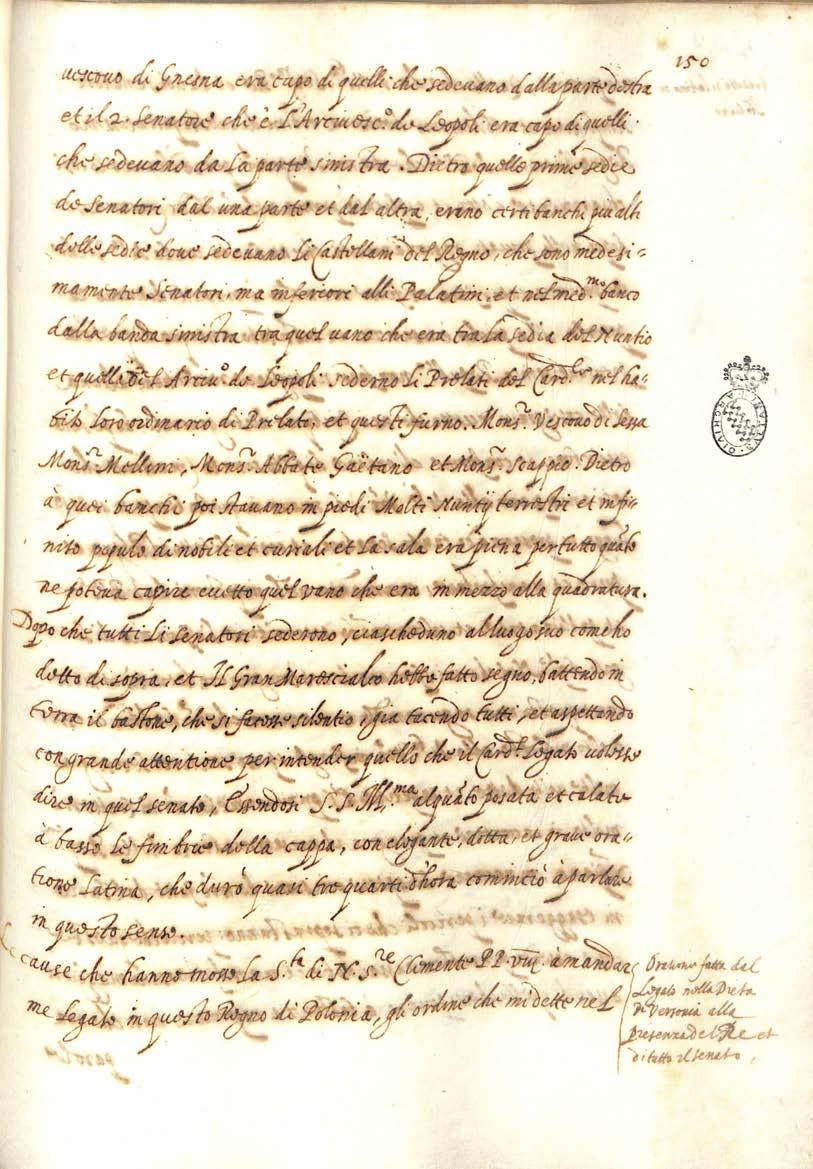 150
uescouo di Gnesna era capo di quelli che sedeuano dalla parte destra
et il 2. Senatore che è L'Arciuesc.º de Leopoli era capo di quelli
che sedeuano da La parte sinistra. Dietro quelle prime sedie
de Senatori dal una parte et dal altra, erano certi banchi piu alti
delle sedie doue sedeuano li Castellani del Regno, che sono medesi-
mamente Senatori, ma inferiori alli Palatini, et nel med.mo banco
dalla banda sinistra tra quel uano che era tra la sedia del Nuntio
et quella del Arciu.º de Leopoli sederno li Prelati del Card.le nel ha-
bito loro ordinario di Prelato, et questi furno. Mons.r Vescouo di Sessa
Mons.r Mellini, Mons.r Abbate Gaëtano et Mons.r Scappio. Dietro
à quei banchi poi stauano in piedi Molti Nuntij terrestri et infi-
nito populo di nobili et curiali et La sala era piena per tutto quãto
ne poteua capire ecetto quel vano che era in mezzo alla quadratura.
Dopo che tutti Li Senatori sederono, ciascheduno al luogo suo come ho
detto di sopra, et Il Gran Marescialco hebbe fatto segno, battendo in
terra il bastone, che si facesse silentio, già tacendo tutti, et aspettando
con grande attentione per intender quello che il Card.l Legato uolesse
dire in quel senato, Essendosi S. S. Ill.ma alquãto posata et calate
à basso le fimbrie della cappa, con elegante, dotta, et graue ora-
tione Latina, che durò quasi tre quarti d'hora cominciò à parlare
in questo senso.
Le cause che hanno mosso La S.ta di N. S.re Clemente PP. viij. à mandar
me Legato in questo Regno di Polonia, gli ordine che mi dette nel
Oratione fatta dal
Legato nella Dieta
di Versouia alla
presenza del Re et
di tutto il senato,
ARCHIVIO